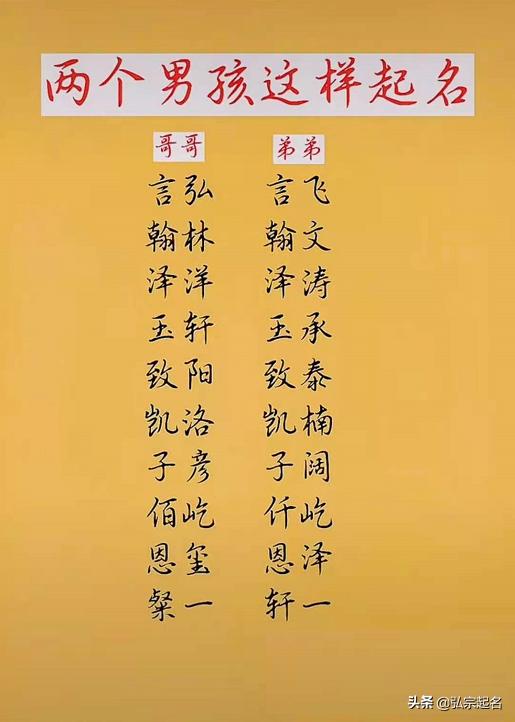 两个男孩这样起名
哥哥 弟弟
言弘 言飞
翰林 翰文
泽洋 泽涛
玉轩 玉承
致阳 致泰
凯洛 凯楠
子彦 子阔
佰屹 仟屹
恩玺 恩泽
粲一 轩一
头条 @弘宗起名